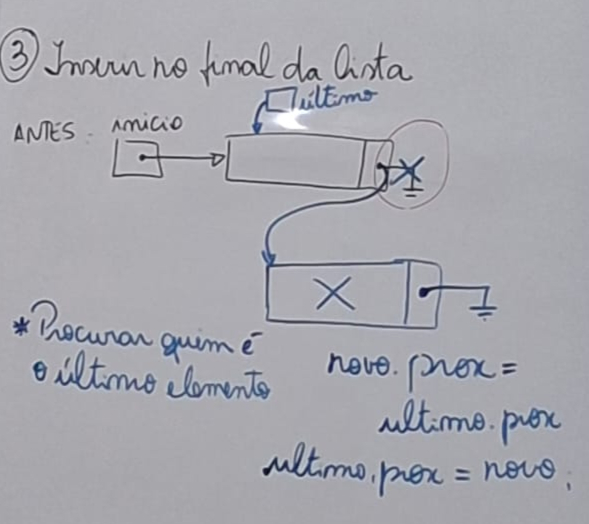 3 Inserir no final da lista
último
ANTES: inicio
X
* Procurar quem é
o último elemento
novo.prox =
ultimo.prox
ultimo.prox = novo;